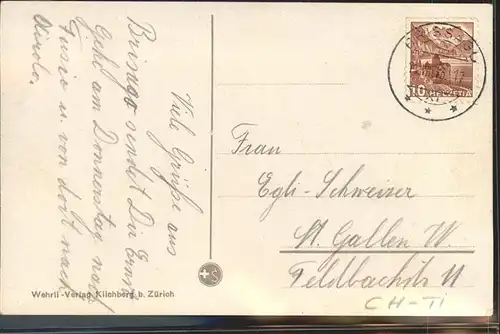 Viele Grüße aus
Brisago sendet Dir Ernst
Geht am Donnerstag nach
Fusio u. von dort nach
Airolo.
10 HELVETIA
Frau
Egli-Schweizer
St. Gallen W.
Feldbachstr
CH-TI
Wehrli-Verlag Kilchberg b. Zürich